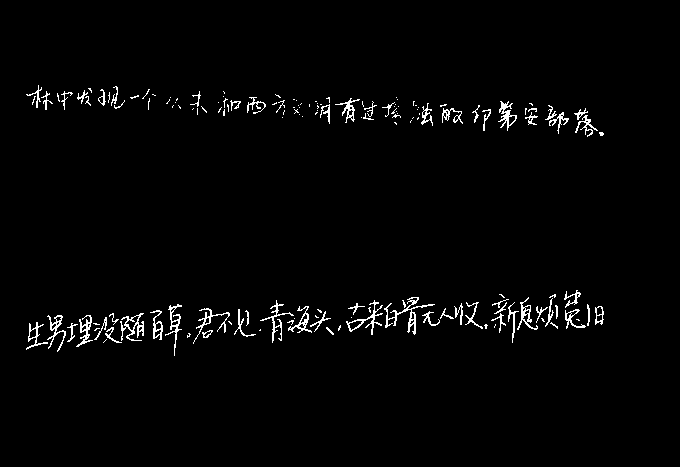 林中发现一个从未和西方文明有过接触的印第安部落。
生男埋没随百草,君不见,青海头,古来白骨无人收,新鬼烦冤旧